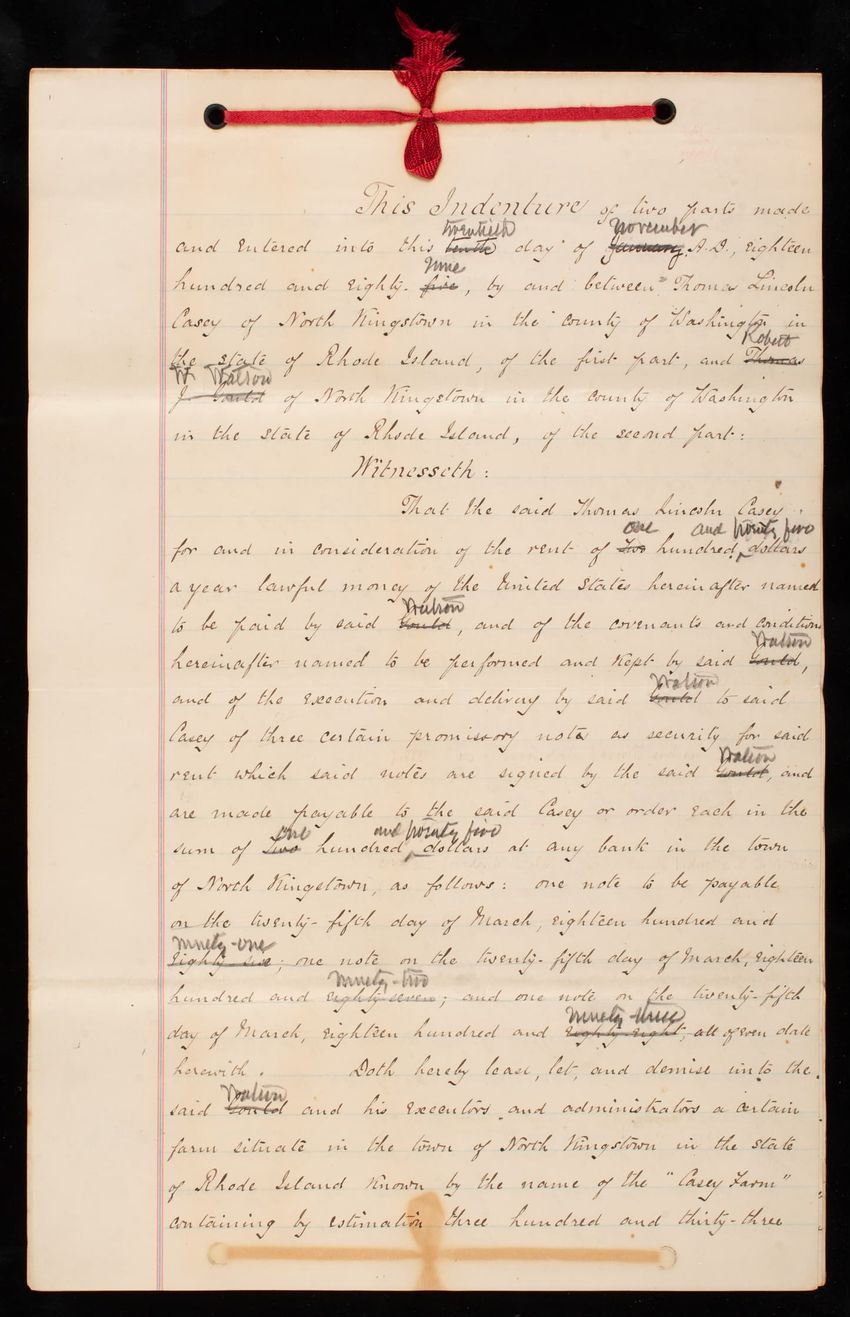 This Indenture of two parts made
twentieth november
and entered into this tenth day of January A.D., eighteen
nine
hundred and eighty-five, by and between Thomas Lincoln
Casey of North Kingstown in the county of Washington in
Robert
the state of Rhode Island, of the first part, and Thomas
W. Watson
J. Gould of North Kingstown in the county of Washington
in the state of Rhode Island, of the second part:
Witnesseth:
That the said Thomas Lincoln Casey
one and twenty five
for and in consideration of the rent of two hundred dollars
a year lawful money of the United States hereinafter named
Watson
to be paid by said Gould, and of the covenants and conditions
Watson
hereinafter named to be performed and kept by said Gould,
Watson
and of the execution and delivery by said Gould to said
Casey of three certain promissory notes as security for said
Watson
rent which said notes are signed by the said Gould, and
are made payable to the said Casey or order each in the
one and twenty five
sum of two hundred dollars at any bank in the town
of North Kingstown, as follows: one note to be payable
on the twenty-fifth day of March, eighteen hundred and
ninety-one
eighty six; one note on the twenty-fifth day of March, eighteen
ninety-two
hundred and eighty seven; and one note on the twenty-fifth
ninety-three
day of March, eighteen hundred and eighty eight, all of even date
herewith. Doth hereby lease, let, and demise unto the
Watson
said Gould and his executors and administrators a certain
farm situate in the town of North Kingstown in the state
of Rhode Island known by the name of the "Casey Farm"
containing by estimation three hundred and thirty-three